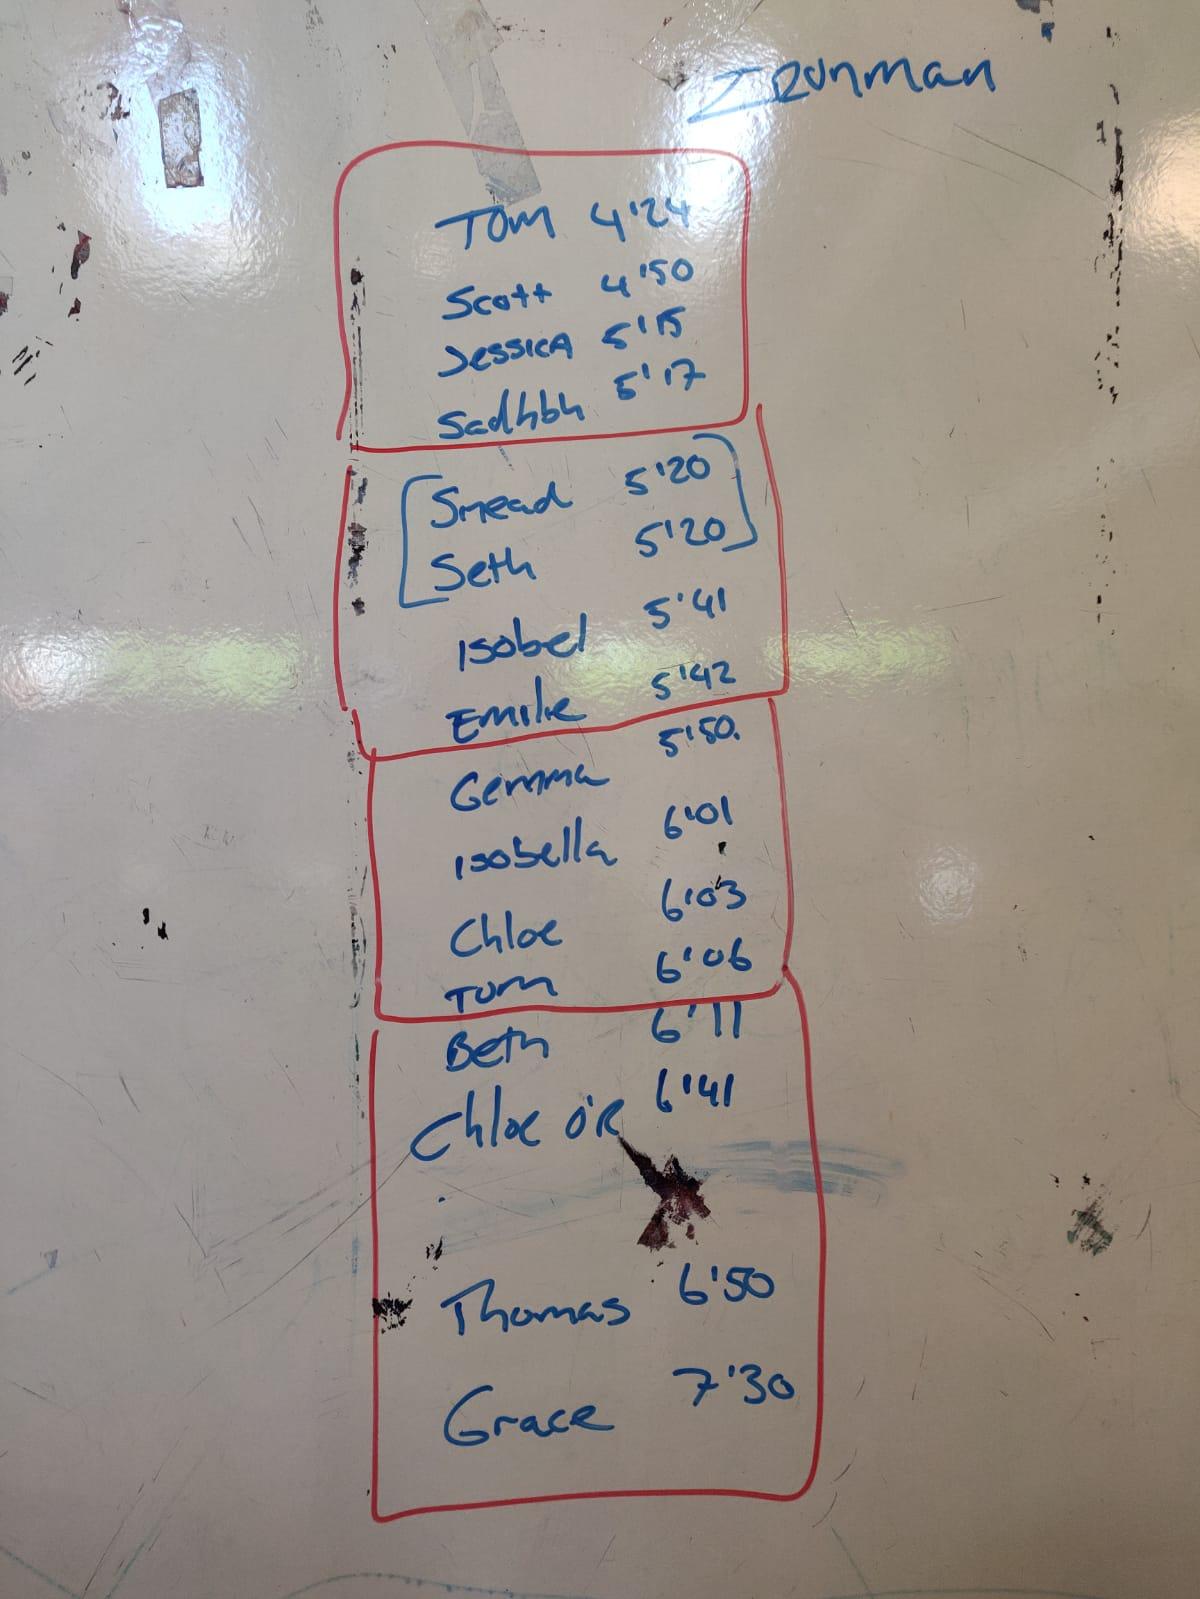 IRONMAN
Tom 4'24
Scott 4'50
Jessica 5'15
Sadhbh 5'17
Smead 5'20
Seth 5'20
Isobel 5'41
Emilie 5'42
Gemma 5'50.
Isobella 6'01
Chloe 6'03
Tom 6'06
Beth 6'11
Chloe O'R 6'41
Thomas 6'50
Grace 7'30